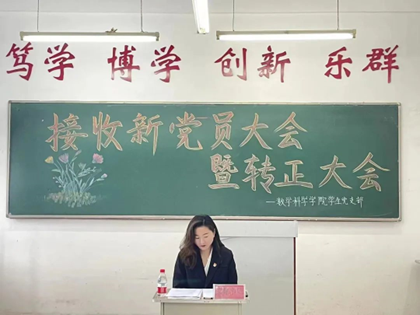 笃学 博学 创新 乐群
接收新党员大会
暨转正大会
——数学科学学院学生党支部